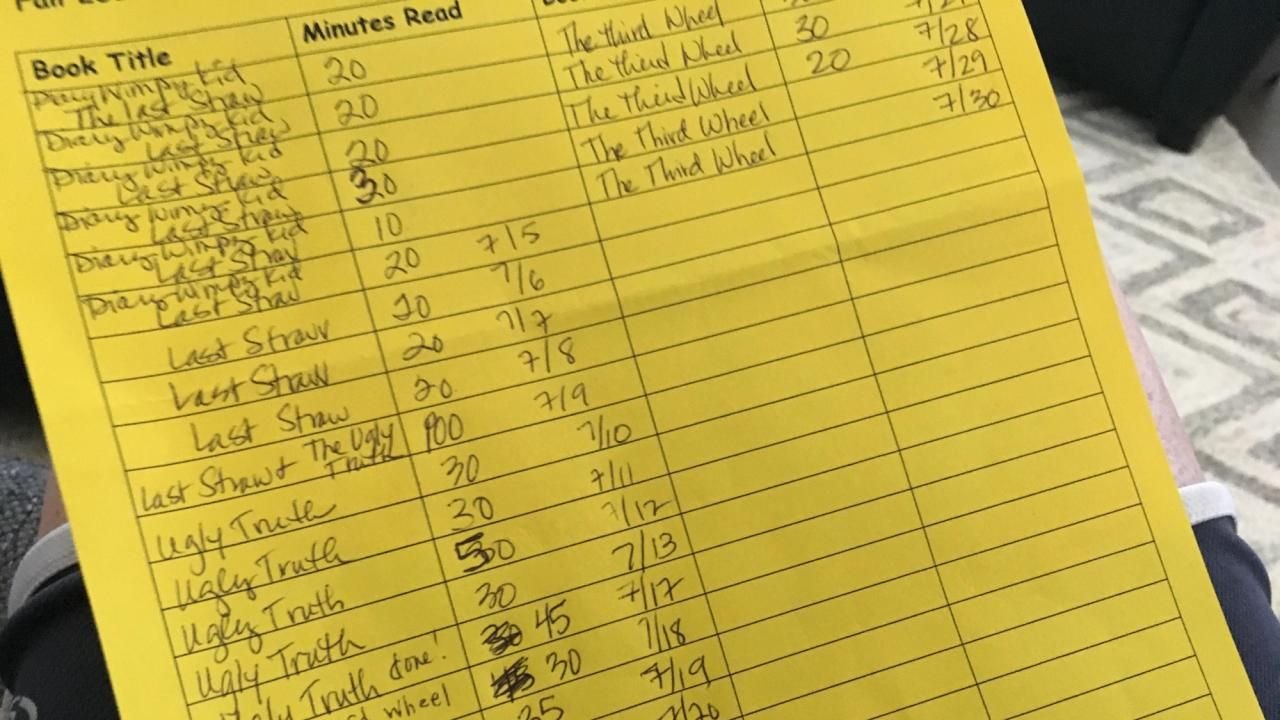 Book Title Minutes Read
Diary Wimpy Kid
The last Straw 20
Diary Wimpy Kid
Last Straw 20
Diary Wimpy Kid
Last Straw 20
Diary Wimpy Kid
Last Straw 30
Diary Wimpy Kid
Last Straw 10
Diary Wimpy Kid
Last Straw 20 7/5
Last Straw 20 7/6
Last Straw 20 7/7
Last Straw 20 7/8
Last Straw & The Ugly Truth 100 7/9
Ugly Truth 30 7/10
Ugly Truth 30 7/11
Ugly Truth 50 7/12
Ugly Truth 30 7/13
Ugly Truth done! 45 7/17
wheel 30 7/18
35 7/19
7/20
The third Wheel
The third Wheel 30 7/28
The third Wheel 20 7/29
The Third Wheel 7/30
The Third Wheel